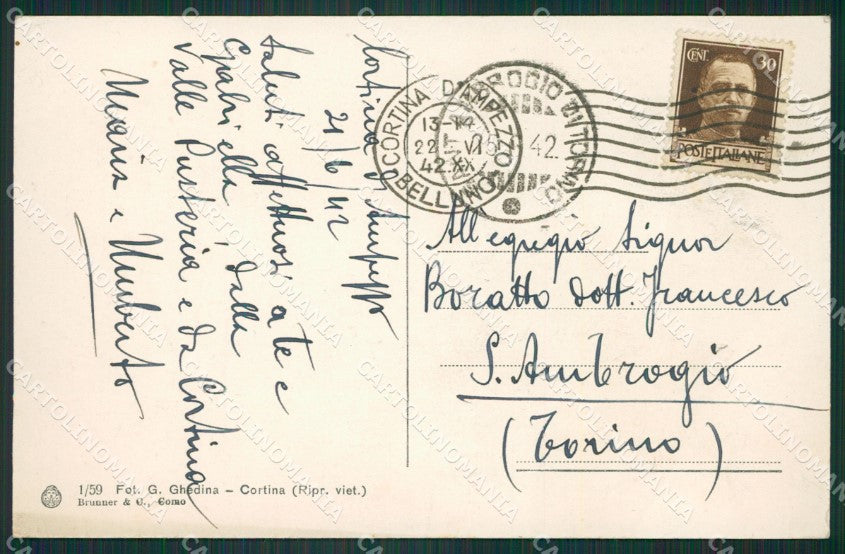 Cortina d'Ampezzo
21/6/42
Saluti affettuosi a te e
Gabriella, dalla
Valle Pusteria e da Cortina
Maria e Umberto
1/59 Fot. G. Ghedina – Cortina (Ripr. viet.)
Brunner & C., Como
CORTINA D'AMPEZZO
13-14
22 VI
42.XX
(BELLUNO)
AMBROGIO DI TORINO
42
CENT. 30
POSTE ITALIANE
All'egregio Signor
Boratto dott. Francesco
S. Ambrogio
(Torino)
CARTOLINOMANIA